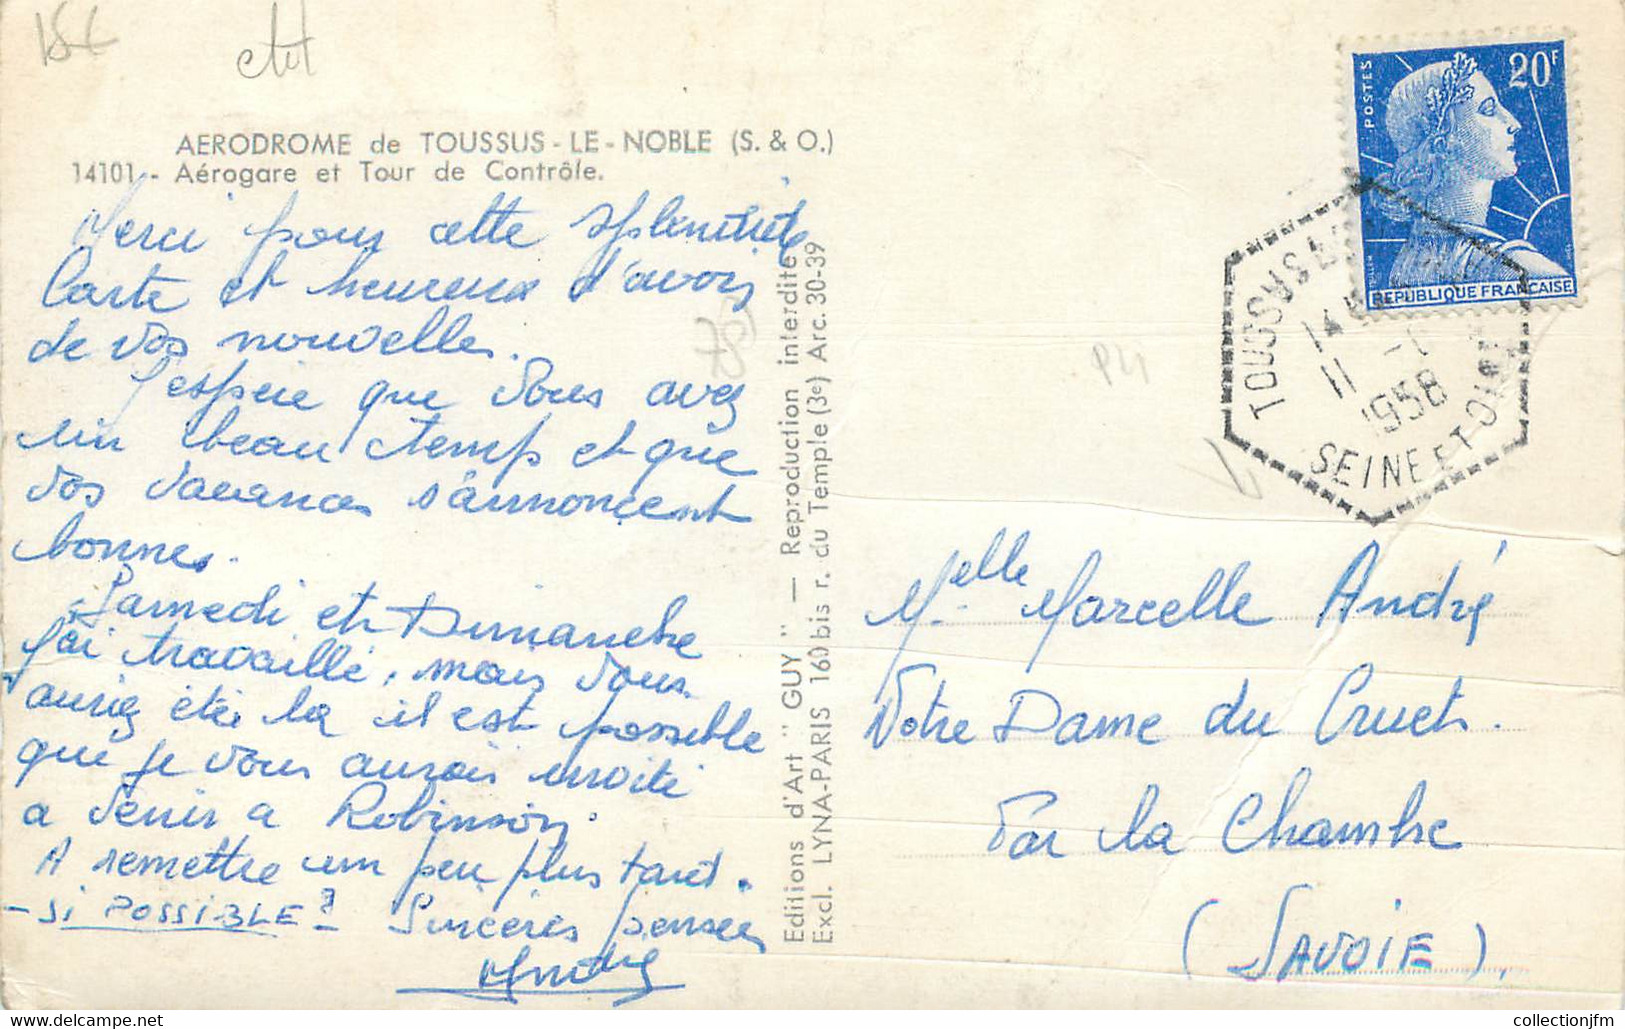 15€
AERODROME de TOUSSUS-LE-NOBLE (S. & O.)
14101 - Aérogare et Tour de Contrôle.
Merci pour cette splendide
Carte et heureux d'avoir
de vos nouvelles.
J'espère que Vous avez
un beau temps et que
vos vacances s'annoncent
bonnes.
Samedi et Dimanche
j'ai travaillé, mais Vous
auriez été là il est possible
que je vous aurais invité
a venir a Robinson.
A remettre un peu plus tard.
- SI POSSIBLE? Sincères pensées
André
Editions d'Art "GUY" — Reproduction interdite
Excl. LYNA-PARIS 160bis r. du Temple (3e) Arc. 30-39
78
P4
POSTES
20F
REPUBLIQUE FRANÇAISE
TOUSSUS
11
1958
SEINE ET OISE
Melle Marcelle André
Notre Dame du Cruet.
Par la Chambre
(SAVOIE).
collectionjfm